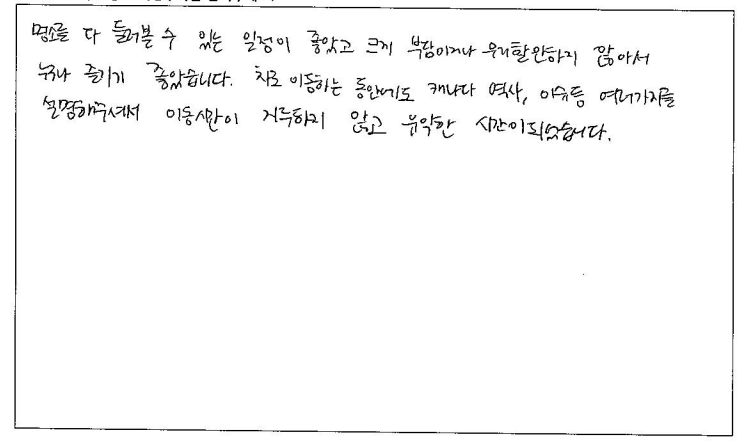 명소를 다 둘러볼 수 있는 일정이 좋았고 크게 부담이거나 않아서
누구나 즐기기 좋았습니다. 차로 이동하는 동안에도 캐나다 역사, 이슈등 여러가지를
설명해주셔서 이동시간이 지루하지 않고 유익한 시간이되었습니다.